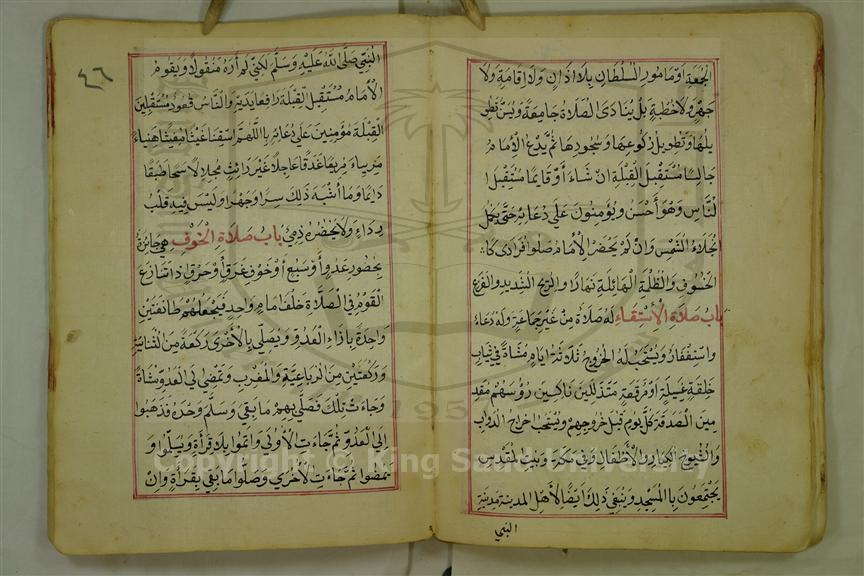 الجمعة او مامور السلطان بلا اذان ولا اقامة ولا
جهر ولا خطبة بل ينادى الصلاة جامعة ويسن تطو
يلها وتطويل ركوعها وسجودها ثم يدع الامام
جالسا مستقبل القبلة ان شاء او قايما مستقبل ا
لناس وهو احسن ويؤمنون على دعائه حتى يكمل
انجلاء الشمس وان لم يحضر الامام صلوا فرادى كا
لخسوف والظلمة الهائلة نهارا والريح الشديد والفزع
باب صلاة الاستسقاء له صلاة من غير جماعة وله دعاء
واستغفار ويستحب له الخروج ثلاثة ايام مشاة في ثياب
خلقة غسيلة او مرقعة متذللين ناكسين رؤسهم مقد
مين الصدقة كل يوم قبل خروجهم ويستحب اخراج الدواب
والشيوخ الكبار والاطفال وفي مكة وبيت المقدس
يجتمعون باالمسجد وينبغي ذلك ايضا لاهل المدينة مدينة
النبي
٤٦
النبي صلى الله عليه وسلم لكني لم اره منقولا ويقوم
الامام مستقبل القبلة رافعا يديه والناس قعود مستقبلين
القبلة مؤمنين على دعائه باللهم اسقنا غيثا مغيثا هنياء
مرياء مريعا غدقا عاجلا غير رائث مجللا سحا طبقا
دايما وما اشبه ذلك سرا وجهرا وليس فيه قلب
رداء ولا يحضره ذمي باب صلاة الخوف هي جائزة
بحضور عدو او سبع او خوف غرق او حرق واذا تنازع
القوم في الصلاة خلف امام واحد فيجعلهم طائفتين
واحدة بازاء العدو ويصلي بالاخرى ركعة من الثنائية
وركعتين من الرباعية والمغرب وتمضي الى العدو مشاة
وجاءت تلك فصلى بهم ما بقي وسلم وحده فذهبوا
الى العدو ثم جاءت الاولى واتموا بلا قرأة وسلموا و
يمضوا ثم جاءت الاخرى وصلوا ما بقي بقرأة وان
Copyright © King Saud University
195